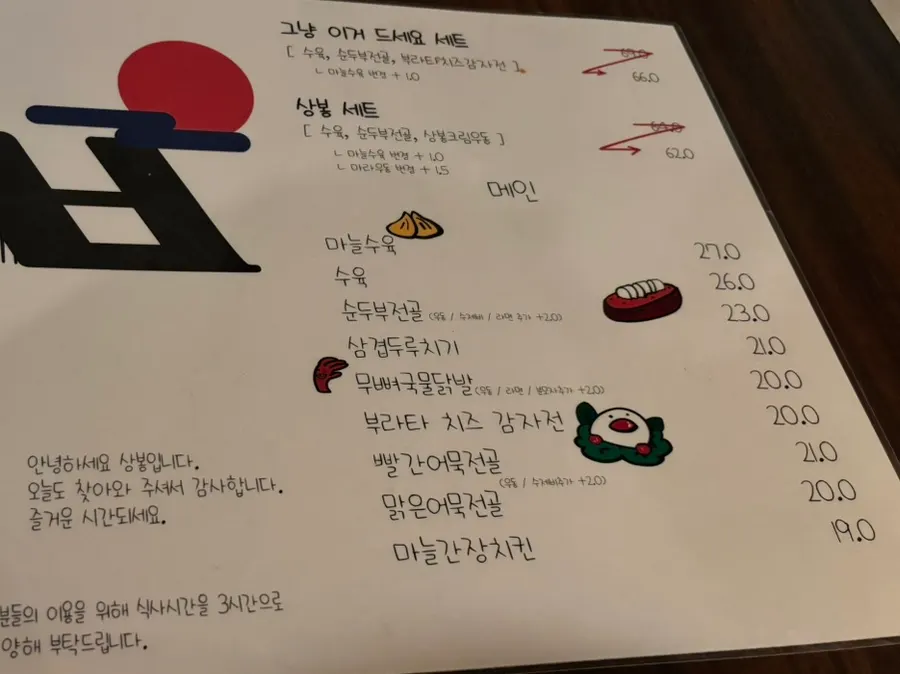 그냥 이거 드세요 세트
[ 수육, 순두부전골, 부라타치즈감자전 ]
ㄴ 마늘수육 변경 + 1.0
66.0
상봉 세트
[ 수육, 순두부전골, 상봉크림우동 ]
ㄴ 마늘수육 변경 + 1.0
ㄴ 마라우동 변경 + 1.5
62.0
메인
마늘수육 27.0
수육 26.0
순두부전골 (우동 / 수제비 / 라면 추가 +2.0) 23.0
삼겹두루치기 21.0
무뼈국물닭발 (우동 / 라면 / 분모자추가 +2.0) 20.0
부라타 치즈 감자전 20.0
빨간어묵전골 21.0
(우동 / 수제비추가 +2.0)
맑은어묵전골 20.0
마늘간장치킨 19.0
안녕하세요 상봉입니다.
오늘도 찾아와 주셔서 감사합니다.
즐거운 시간되세요.
분들의 이용을 위해 식사시간을 3시간으로
양해 부탁드립니다.